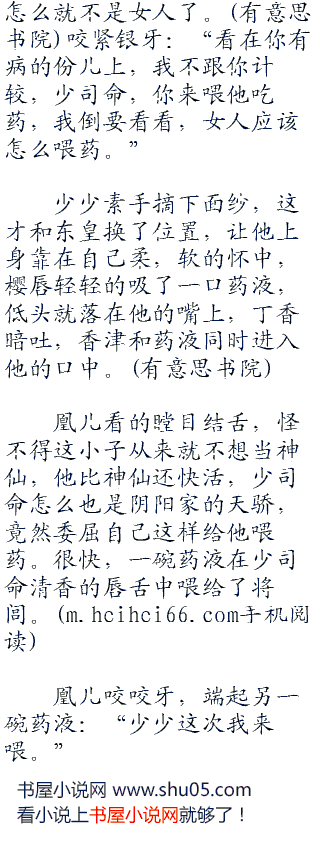 怎么就不是女人了。(有意思
书院)咬紧银牙：“看在你有
病的份儿上，我不跟你计
较，少司命，你来喂他吃
药，我倒要看看，女人应该
怎么喂药。”
少少素手摘下面纱，这
才和东皇换了位置，让他上
身靠在自己柔，软的怀中，
樱唇轻轻的吸了一口药液，
低头就落在他的嘴上，丁香
暗吐，香津和药液同时进入
他的口中。(有意思书院)
凰儿看的瞠目结舌，怪
不得这小子从来就不想当神
仙，他比神仙还快活，少司
命怎么也是阴阳家的天骄，
竟然委屈自己这样给他喂
药。很快，一碗药液在少司
命清香的唇舌中喂给了将
闾。(m.hcihci66.com手机阅
读)
凰儿咬咬牙，端起另一
碗药液：“少少这次我来
喂。”
书屋小说网 www.shu05.com
看小说上书屋小说网就够了！